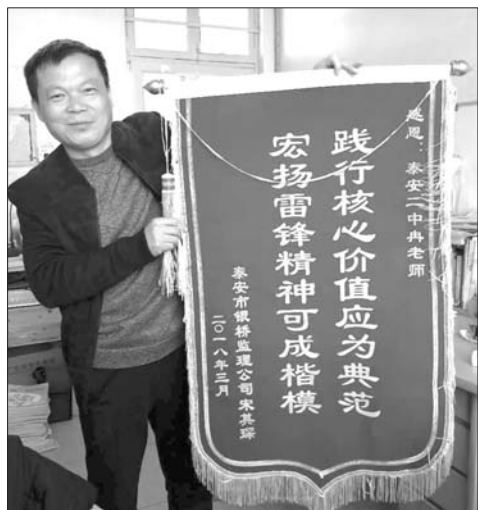 感恩：泰安二中冉老师
践行核心价值应为典范
宏扬雷锋精神可成楷模
泰安市银桥监理公司 宋其琛
二〇一八年三月